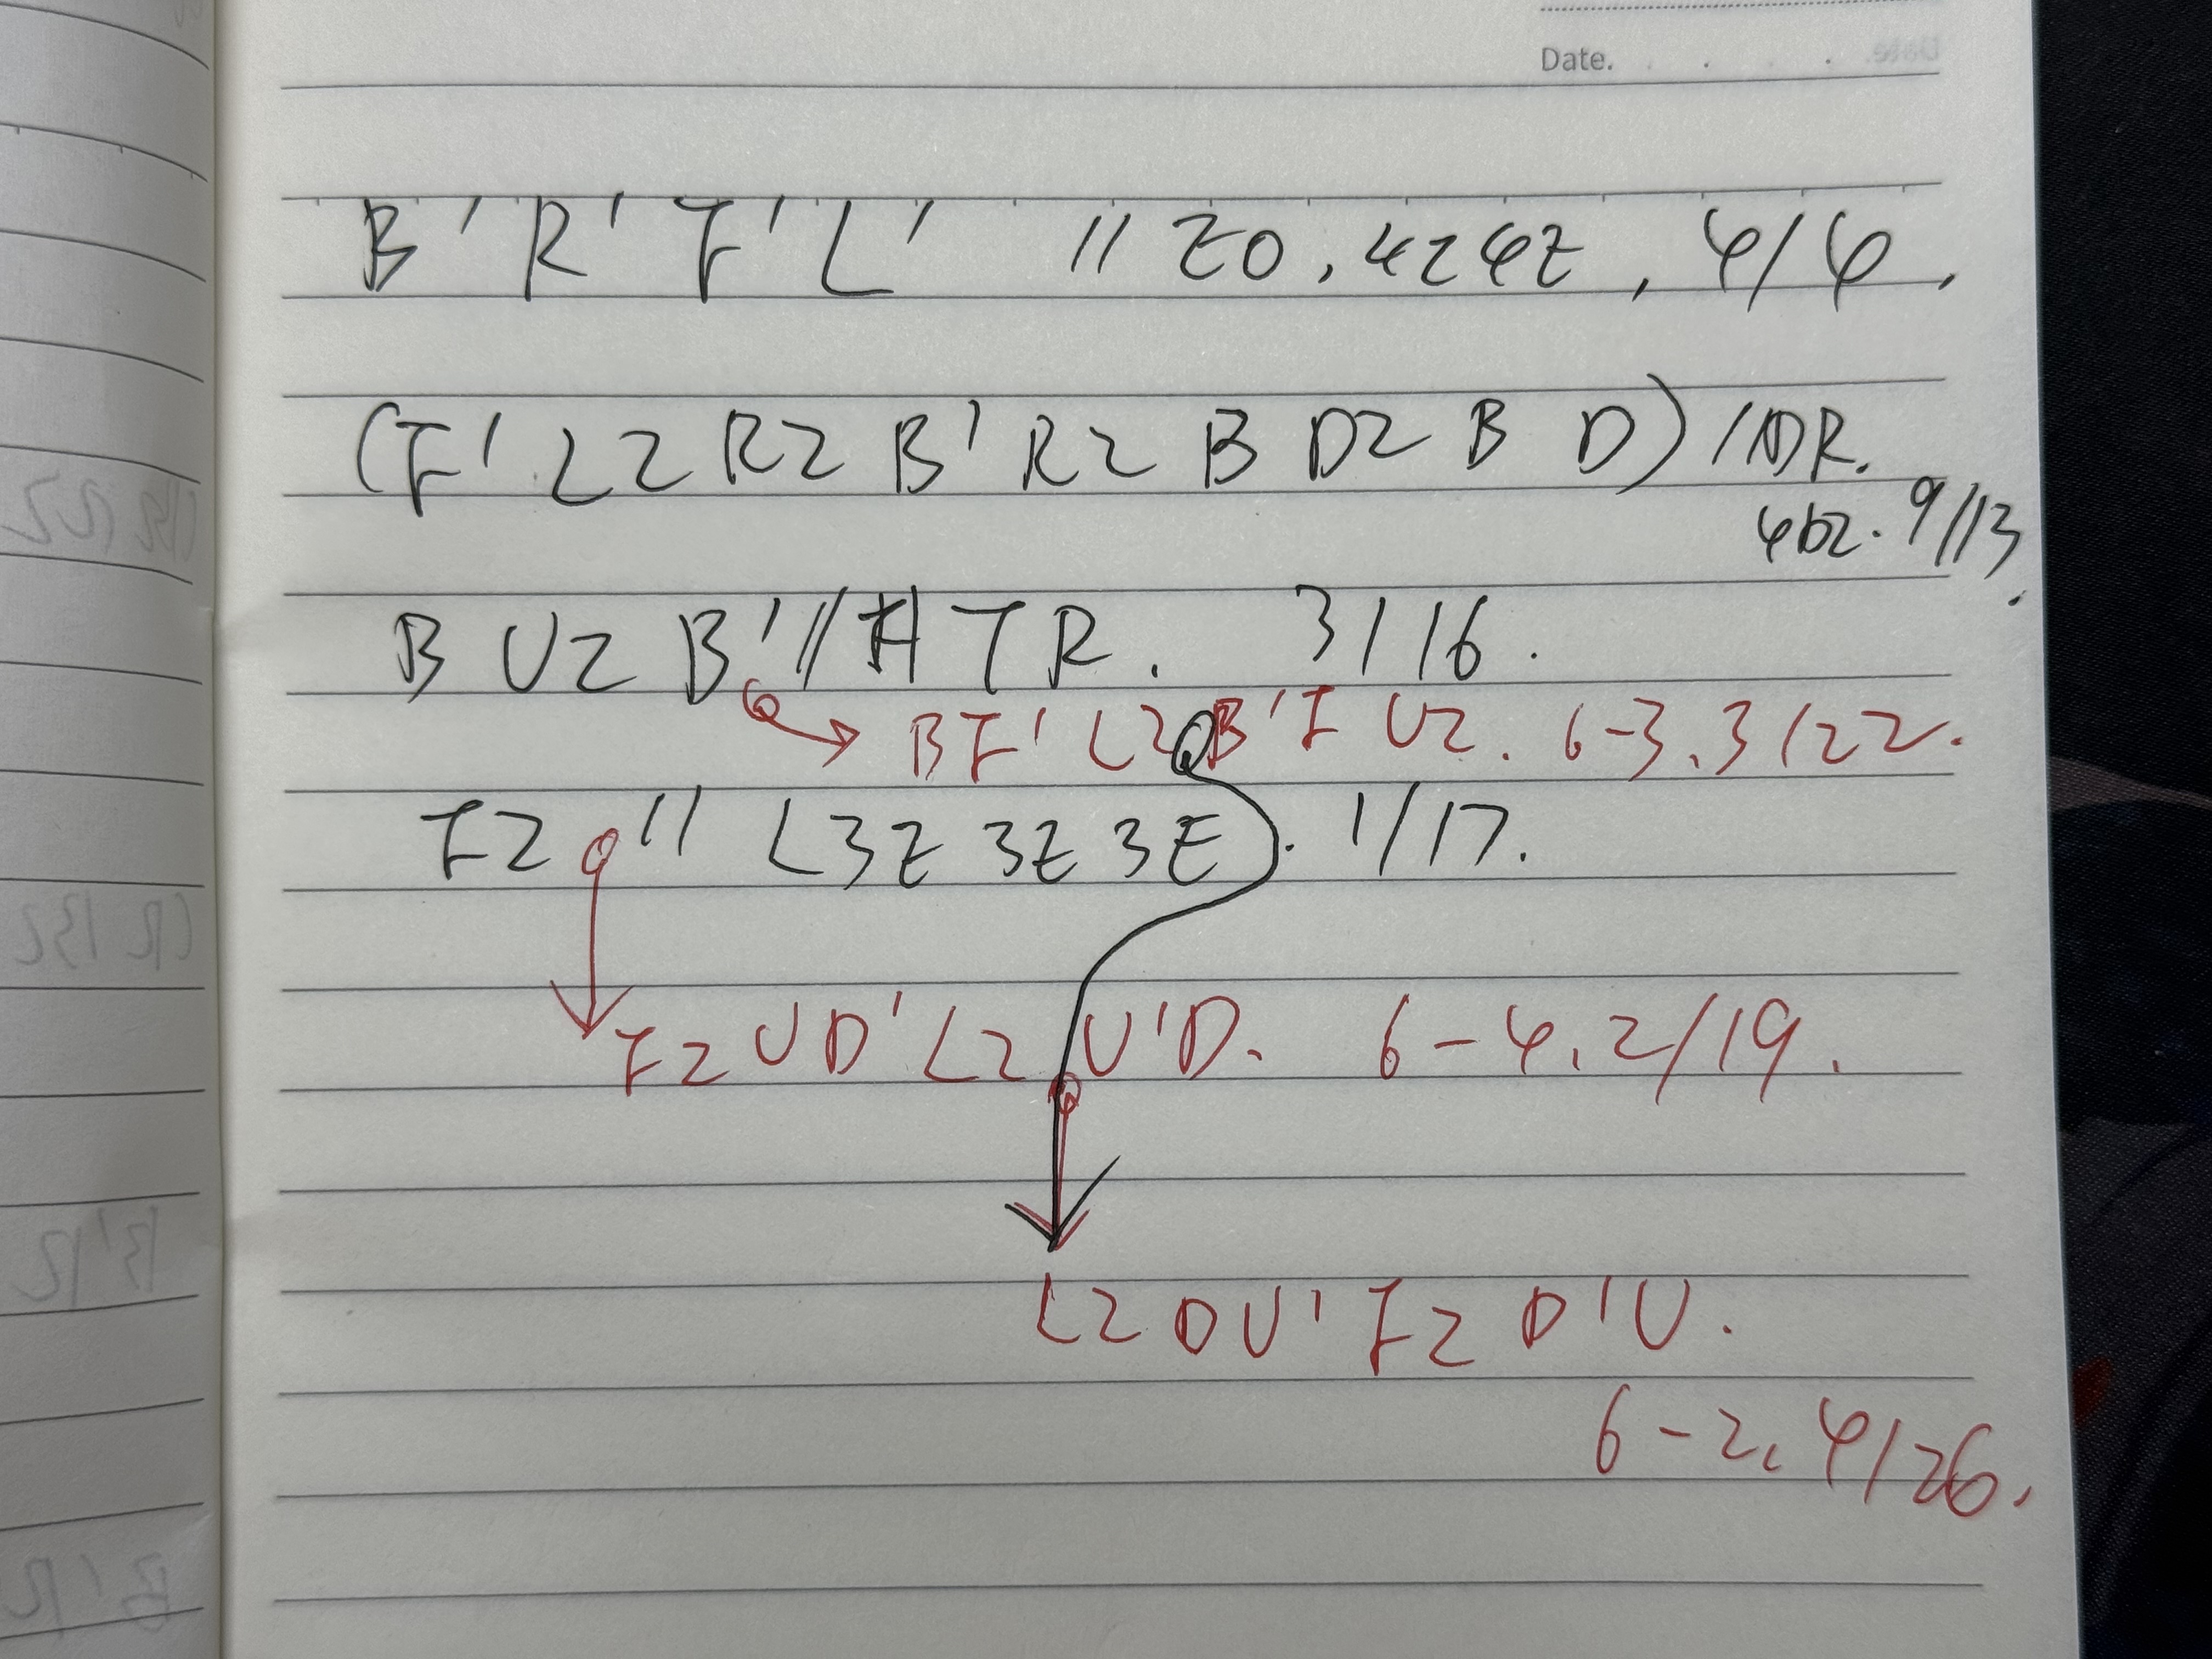 Date.
B' R' F' L' // EO, 4c4e, 4/4,
(F' L2 R2 B' R2 B D2 B D) // DR.
4b2. 9/13.
B U2 B' // HTR. 3/16.
B F' L2 B' F U2. 6-3. 3/22.
F2 // L3E 3E 3E. 1/17.
F2 U D' L2 U' D. 6-4. 2/19.
L2 D U' F2 D' U.
6-2. 4/26.